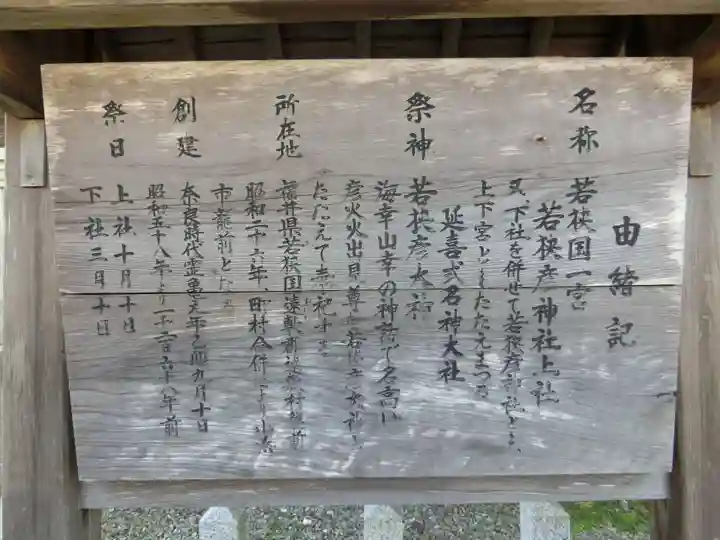 由緒記
名称 若狭国一宮
若狭彦神社上社
又、下社を併せて若狭彦神社とも、
上下宮ともたたえまつる
延喜式名神大社
祭神 若狭彦大神
海幸山幸の神話で名高い
彦火火出見尊を若狭彦大神と
たたえて
所在地 福井県若狭国遠敷郡遠敷村龍前
昭和二十六年、町村合併により小浜
市龍前と
創建 奈良時代霊亀元年乙卯九月十日
昭和五十八年より一千二百六十八年前
祭日 上社十月十日
下社三月十日